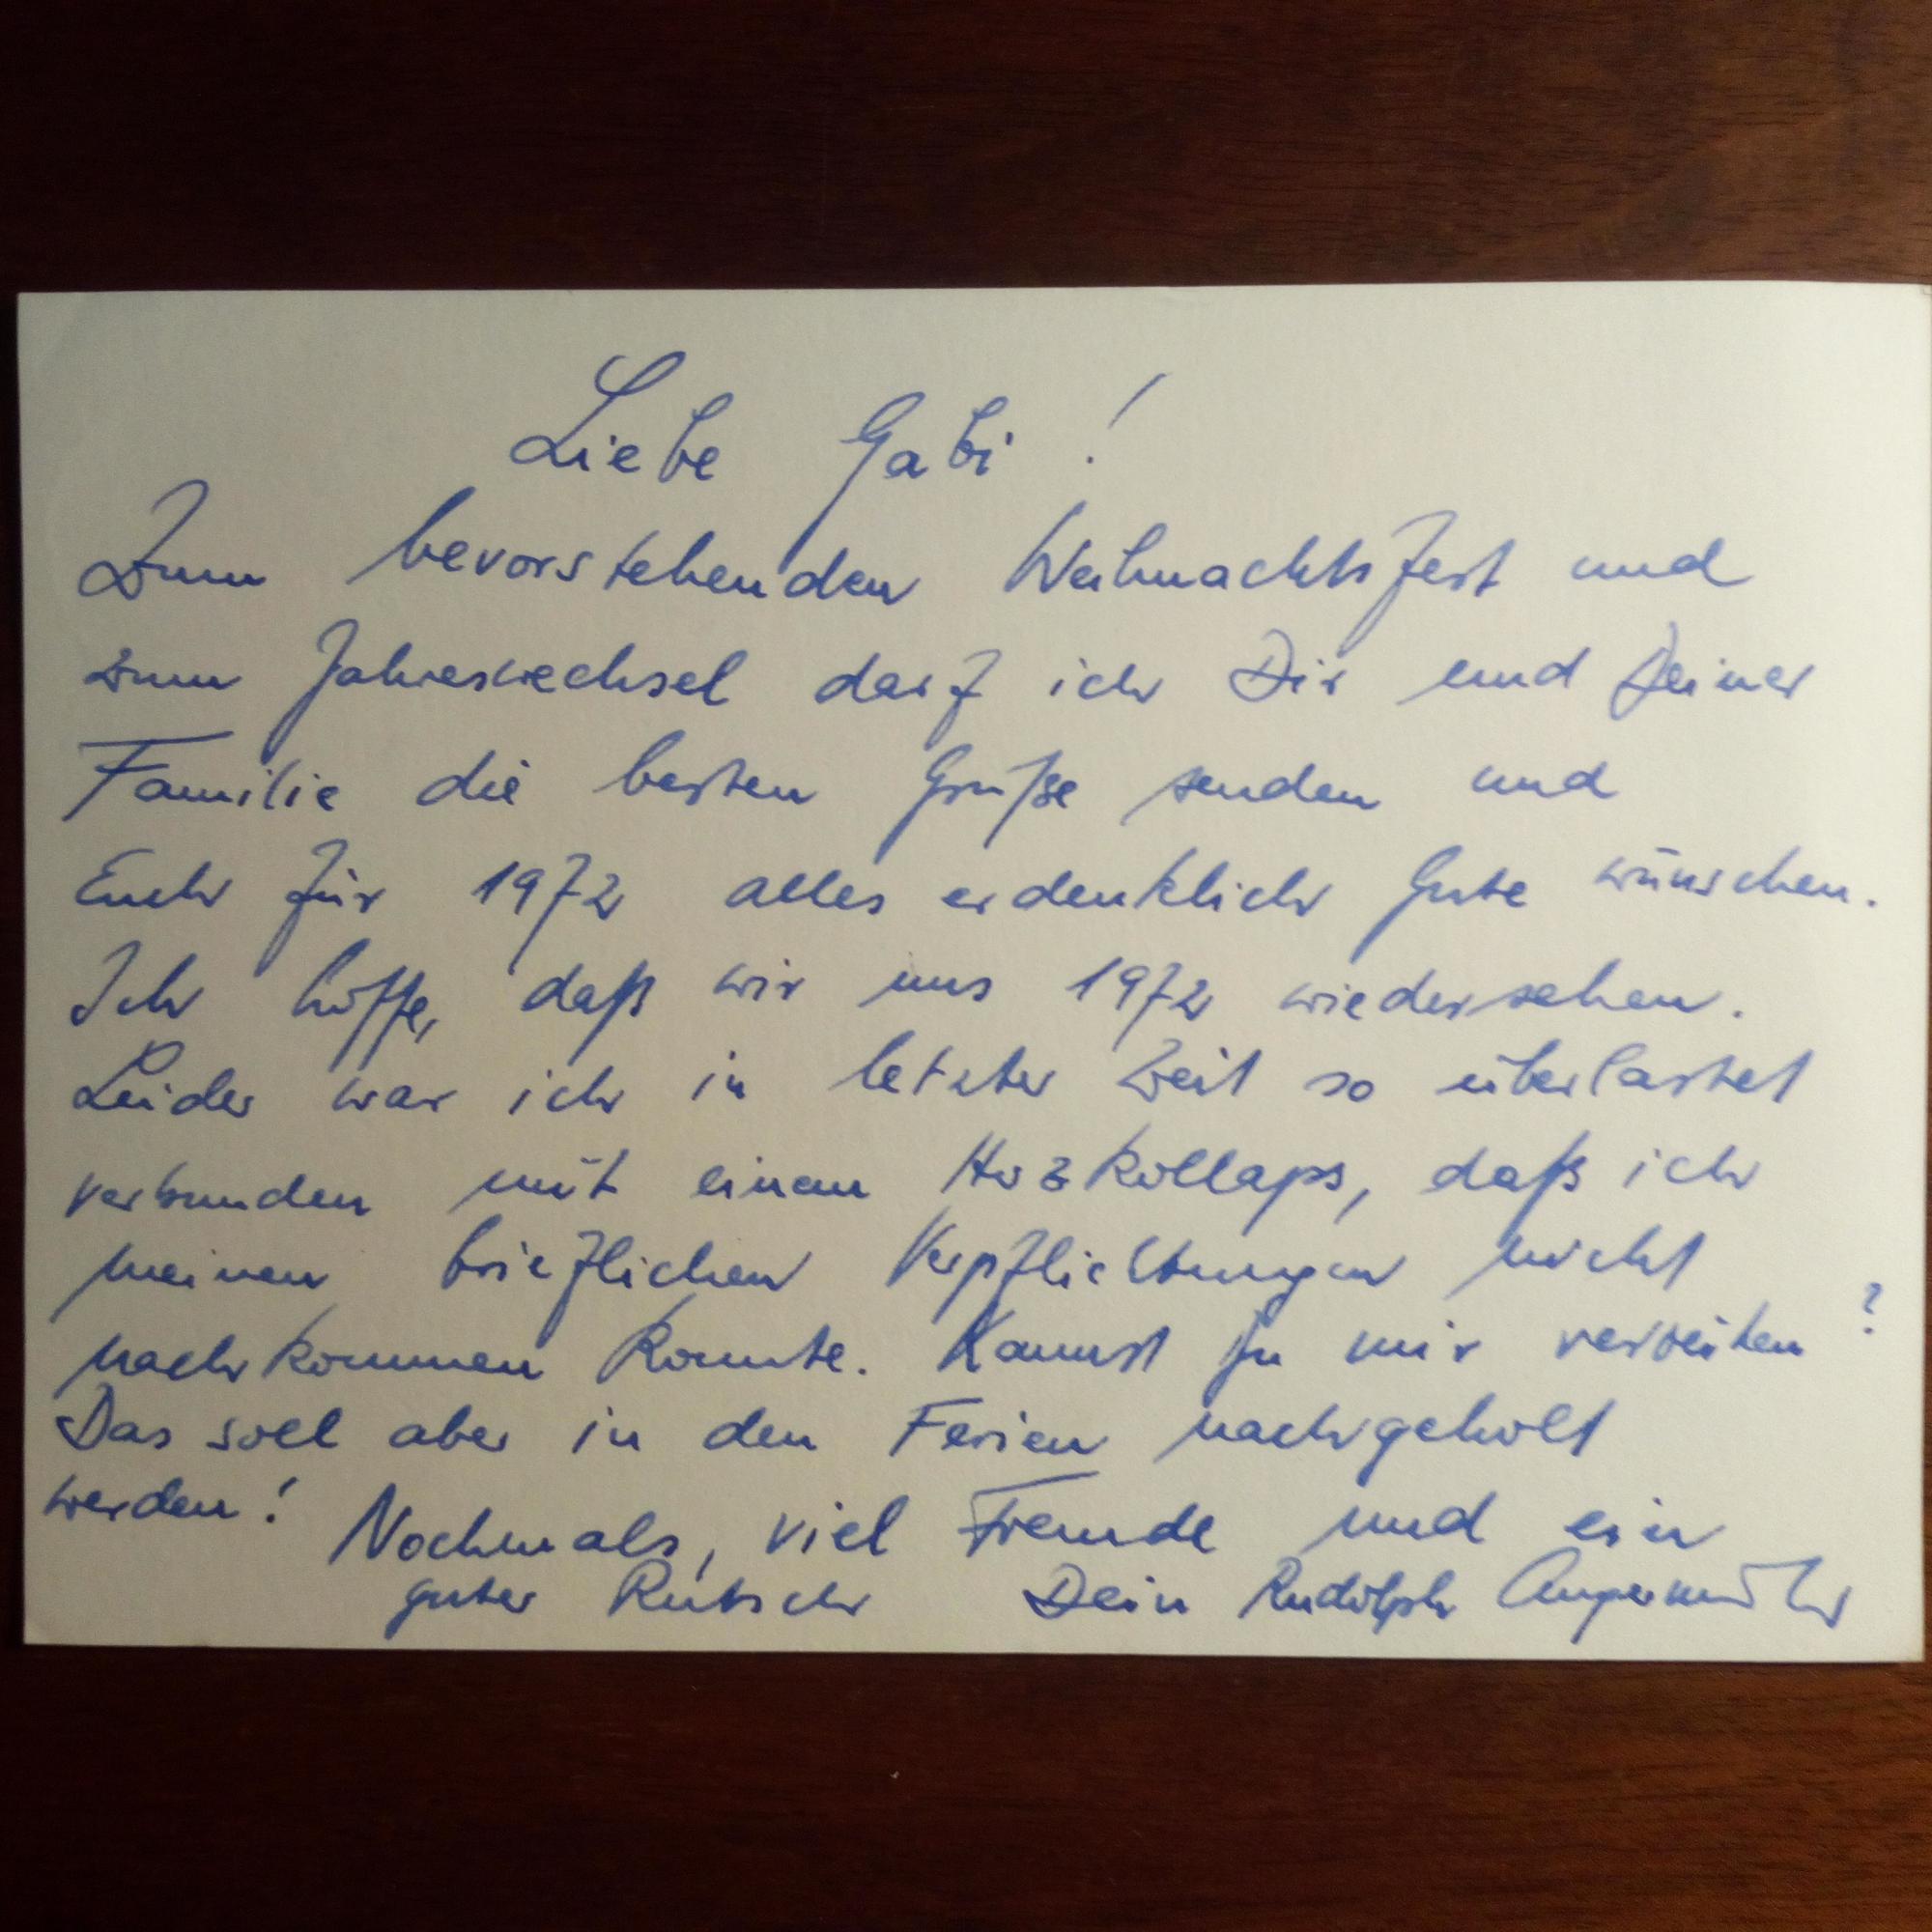 Liebe Gabi!
Zum bevorstehenden Weihnachtsfest und
zum Jahreswechsel darf ich Dir und Deiner
Familie die besten Grüße senden und
Euch für 1972 alles erdenklich Gute wünschen.
Ich hoffe, daß wir uns 1972 wiedersehen.
Leider war ich in letzter Zeit so überlastet
verbunden mit einem Herzkollaps, daß ich
meinen brieflichen Verpflichtungen nicht
nachkommen konnte. Kannst Du mir verzeihen?
Das soll aber in den Ferien nachgeholt
werden! Nochmals, viel Freude und ein
guter Rutsch Dein Rudolph Angermüller